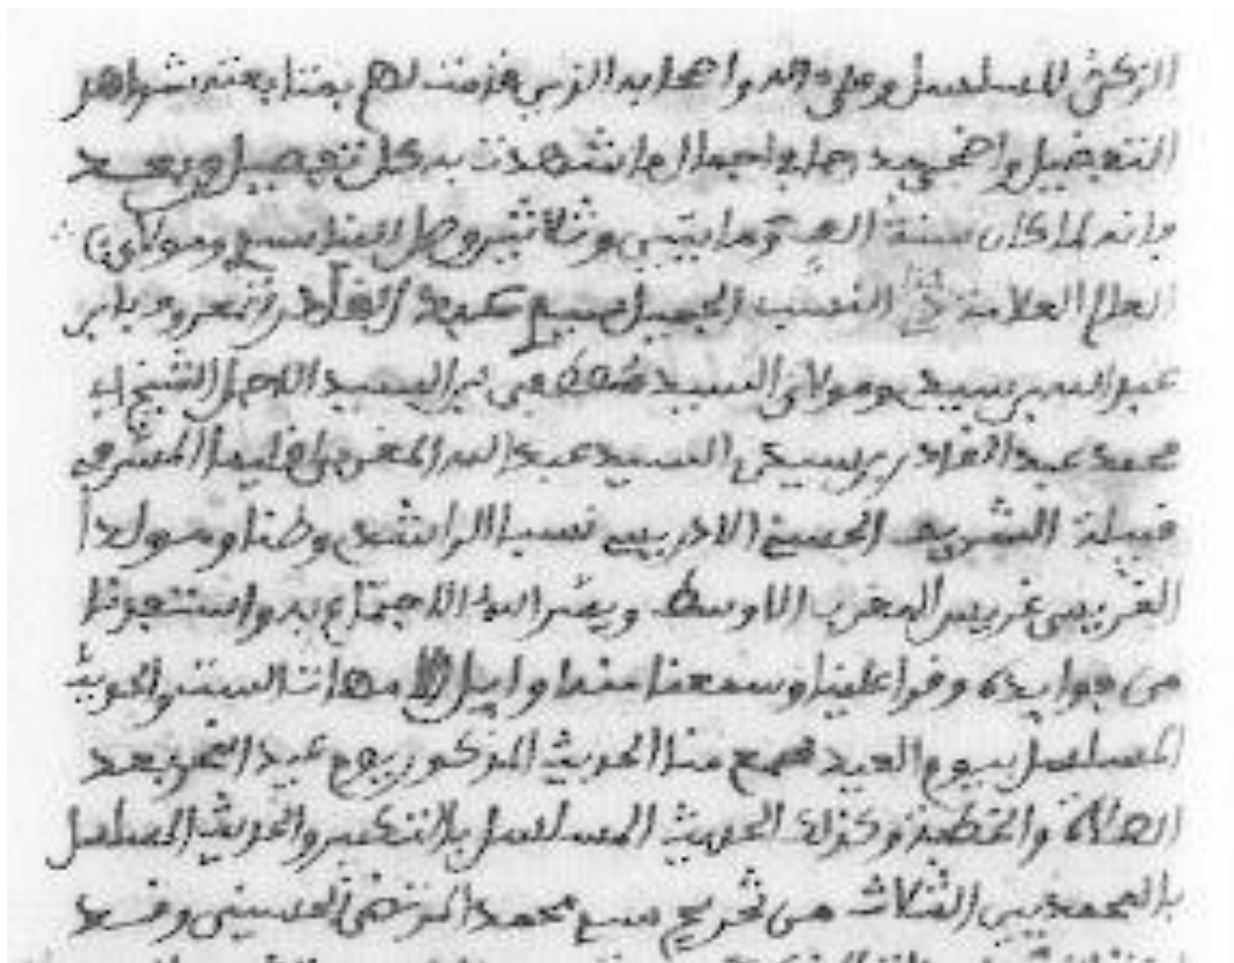 للمسلسل وعلى ءاله واصحابه الذين قامت لهم بمتابعته شواهد
التفضيل اجمال ما شهدت به كل تفصيل وبعد
فانه لما كان سنة الف ومايتين وثلاثين وصل الينا ومولاي
العالم العلامة النسب الجميل المعروف بابن
عبد الله بن سيدي ومولاي السيد مصطفى بن السيد الاجل الشيخ
محمد عبد القادر بن سيدي السيد عبد الله المغربي اقليما المشرفي
قبيلة الشريف الحسني الادريسي نسبا الراشدي وطنا ومولدا
الغريسي غريس المغرب الاوسط ويسر الله الاجتماع به
من فوايده وقرا علينا وسمعنا منه اوايل الامهات الست والحديث
المسلسل بيوم العيد فسمع منا الحديث المذكور يوم عيد النحر بعد
الصلاة والخطبة وكذلك الحديث المسلسل بالتكبير والحديث المسلسل
بالمحمديين الثلاث من تخريج محمد المرتضى الحسيني وقد